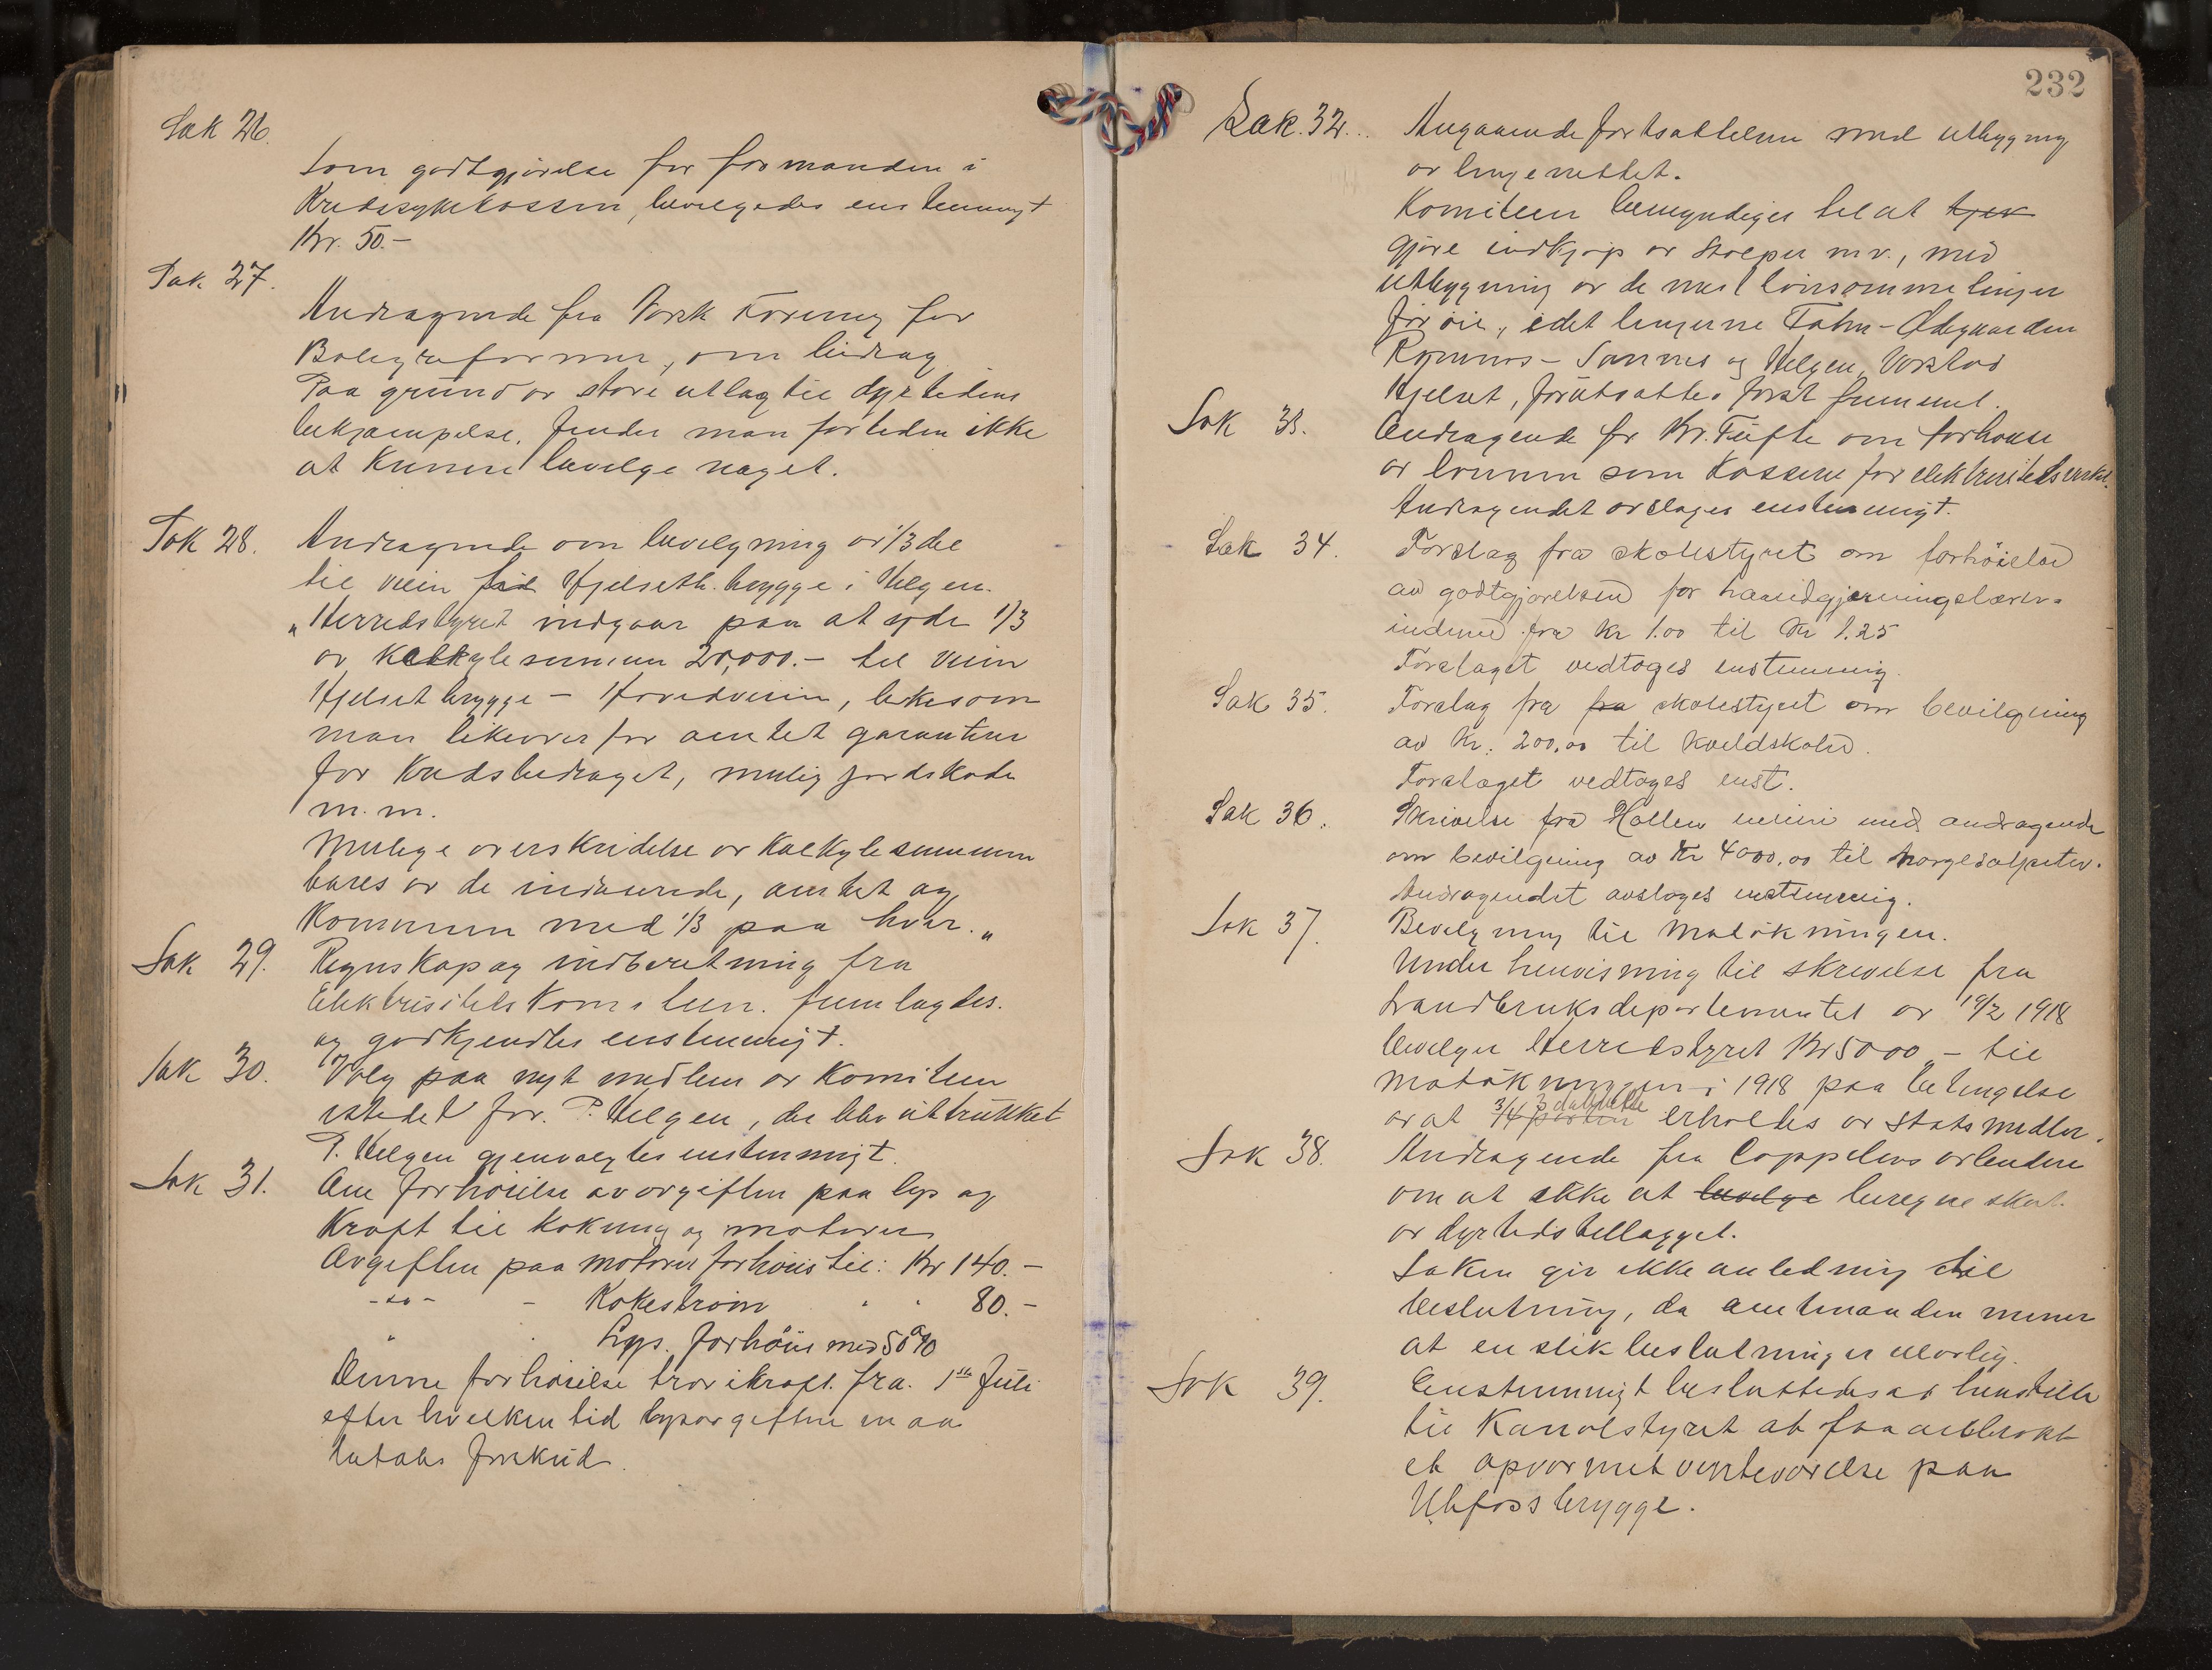 Sak 26.
Som godtgjørelse for formanden i
Kredssykekassen, bevilgedes enstemmigt
Kr. 50.-
Sak 27.
Andragende fra Norsk Forening for
Boligreformer, om bidrag
Paa grund av store utlag til dyrtidens
bekjæmpelse, finder man fortiden ikke
at kunne bevilge noget.
Sak 28. Andragende om bevilgning av 1/3 del
til veien Hjelseth brygge i Helgen.
„Herredstyret indgaar paa at yde 1/3
av kalkylesummen 20,000.- til veien
Hjelset brygge - Hovedveien, likesom
man likeoverfor amtet garanterer
for kredsbidraget, mulig jordskade
m.m.
Mulige overskridelse av kalkylesummen
bæres av de interesserede, amtet og
Kommunen med 1/3 paa hver.„
Sak 29. Regnskap og indberetning fra
Elektrisitetskomiteen. fremlagdes.
og godkjendtes enstemmigt.
Sak 30. Valg paa nyt medlem av Komiteen
istedet for P. Helgen, der blev uttrukket
P. Helgen gjenvalgtes enstemmigt.
Sak 31. Om forhöielse av avgiften paa lys og
Kraft til kokning og motorer
Avgiften paa motorer forhöies til: Kr 140.-
-do- - Kokeström " " 80.-
" " Lys. forhöies med 50%
Denne forhöielse trær ikraft fra 1ste Juli
efter hvilken tid lysavgiften maa
betales forskud.
232
Sak. 32. Angaaende fortsættelsen med utbygning
av linjenettet.
Komiteen bemyndiges til at
gjøre indkjøp av stolper m.v., med
utbygning av de mest lönsomme linjer
for öie, idet linjerne Tahn-Ödegaarden
Romnes-Sannes og Helgen, Vorstad
Hjelset, forutsættes först fremmet.
Sak 33. Andragende fr Kr. Tufte om forhöielse
av lönnen som Kasserer for elektrisitetsverket.
Andragendet avslages enstemmigt.
Sak 34. Forslag fra skolestyret om forhöielse
av godtgjørelsen for haandgjerningslærer-
inderne fra Kr 1.00 til Kr 1.25
Forslaget vedtoges enstemmig.
Sak 35. Forslag fra fra skolestyret om bevilgning
av Kr. 200,00 til kveldskole.
Forslaget vedtoges enst.
Sak 36. Skrivelse fra Hollen meieri med andragende
om bevilgning av Kr 4000,00 til norgesalpeter.
Andragendet avsloges enstemmig.
Sak 37. Bevilgning til Matökningen.
Under henvisning til skrivelse fra
Landbruksdepartementet av 19/2 1918
bevilger Herredstyret Kr 5000,- til
matökningen i 1918 paa betingelse
av at 3/4 parten 3 dobbelte erholdes av statsmidler.
Sak 38. Andragende fra Cappelens arbeidere
om at ikke at bevilge beregne skat
av dyrtidstillægget.
Saken gir ikke anledning til
beslutning, da amtmanden mener
at en slik beslutning er ulovlig.
Sak 39. Enstemmigt besluttedes at henstille
til Kanalstyret at faa anbrakt
et opvarmet venteværelse paa
Ulefoss brygge.